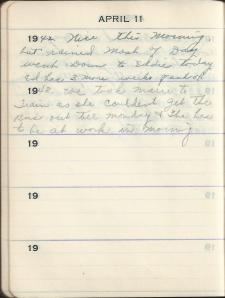 APRIL 11
1942 Nice this Morning
but rained Most of Day
went Down to Eddie today
Ed has 3 more weeks
1948. We took Marie to
Train as she couldnt get the
Bus out till Monday & She has
to be at work in Morning
19
19
19